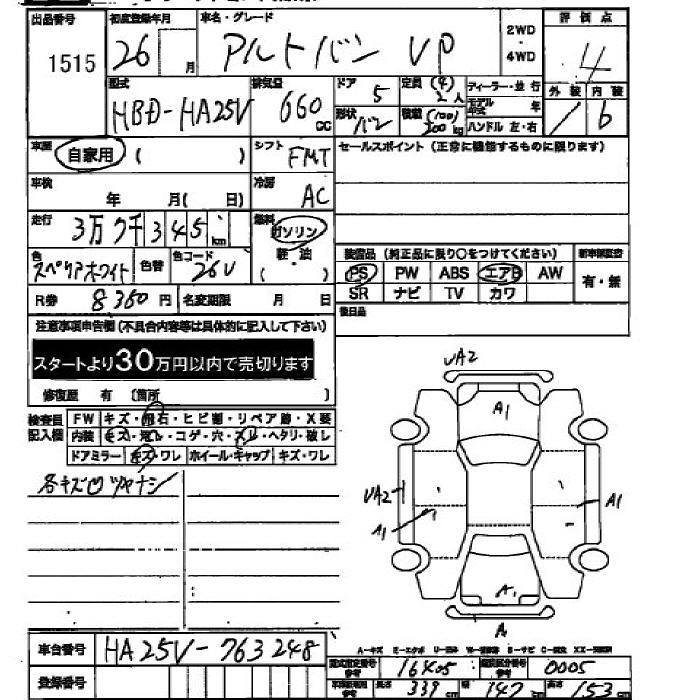 出品番号 初度登録年月 車名・グレード 2WD 評価点
1515 26 月 アルトバン VP ・4WD 4
型式 排気量 ドア 定員 (4) ディーラー・並行 外装 内装
HBD-HA25V 660 cc 5 2人 モデル年式 年
形状 バン 積載 (100) 200kg ハンドル 左・右 b
車歴 自家用 ( ) シフト FMT セールスポイント (正常に機能するものに限ります)
車検 年 月( 日) 冷房 AC
走行 3万9千345km 燃料 ガソリン
軽・油
( )
装備品 (純正品に限り○をつけてください) 新車保証書
色 スペリアホワイト 色替 色コード 26U PS PW ABS エアB AW 有・無
SR ナビ TV カワ
R券 8360円 名変期限 月 日
後日品
注意事項申告欄 (不具合内容等は具体的に記入して下さい)
スタートより30万円以内で売切ります
修復歴 有 〔箇所 〕
検査員記入欄 FW キズ・飛石・ヒビ割・リペア跡・X要
内装 キズ・汚レ・コゲ・穴・スレ・ヘタリ・破し
ドアミラー キズ・ワレ ホイール・キャップ キズ・ワレ
各キズ凹 ツヤナシ
UA2
A1
UA2
A1
A1
A
A
車台番号 HA25V-763248
A-キズ E-エクボ U-凹み W-補修跡 S-サビ C-腐食 XX-交換済
登録番号
型式指定番号 参考 16405 類別区分番号 参考 0005
車検証表用 参考 長さ 339cm 幅 147cm 高さ 153cm